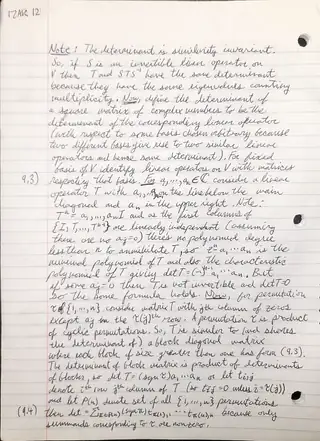 12 MAR 12
Note: The determinant is similarity invariant.
So, if S is an invertible linear operator on
V then T and STS⁻¹ have the same determinant
because they have the same eigenvalues counting
multiplicity. Now, define the determinant of
a square matrix of complex numbers to be the
determinant of the corresponding linear operator
(with respect to some basis chosen arbitrary because
two different bases give rise to two similar linear
operators and hence same determinant). For fixed
basis of V identify linear operators on V with matrices
respecting that basis. For a₁,...,aₙ∈ℂ consider a linear
9.3)
operator T with a₁,...,aₙ₋₁ on the line below the main
diagonal and aₙ in the upper right. Note:
Tⁿ = a₁...aₙI and as the first columns of
{I, T,..., Tⁿ⁻¹} are linearly independent (assuming
there are no aⱼ=0) there's no polynomial degree
less than n to annihilate T, so zⁿ-a₁...aₙ is the
minimal polynomial of T and also the characteristic
polynomial of T giving det T = (-1)ⁿ⁻¹a₁...aₙ. But
if some aⱼ=0 then T is not invertible and det T=0
so the same formula works. Now, for permutation
τ of {1,...,n} consider matrix T with jth column of zeros
except aⱼ in the τ(j)th row. A permutation is a product
of cyclic permutations. So, T is similar to (and shares
the determinant of) a block diagonal matrix
where each block of size greater than one has form (9.3).
The determinant of block matrix is product of determinants
of blocks, so det T = (sgn τ)a₁...aₙ or let tᵢ,ⱼ
denote ith row jth column of T (so tᵢ,ⱼ = 0 unless i = τ(j))
and let P(n) denote set of all {1,...,n} permutations
(9.4)
then det = Σ (sgn π) t π(1),1 ... t π(n),n because only
summands corresponding to τ are non-zero.